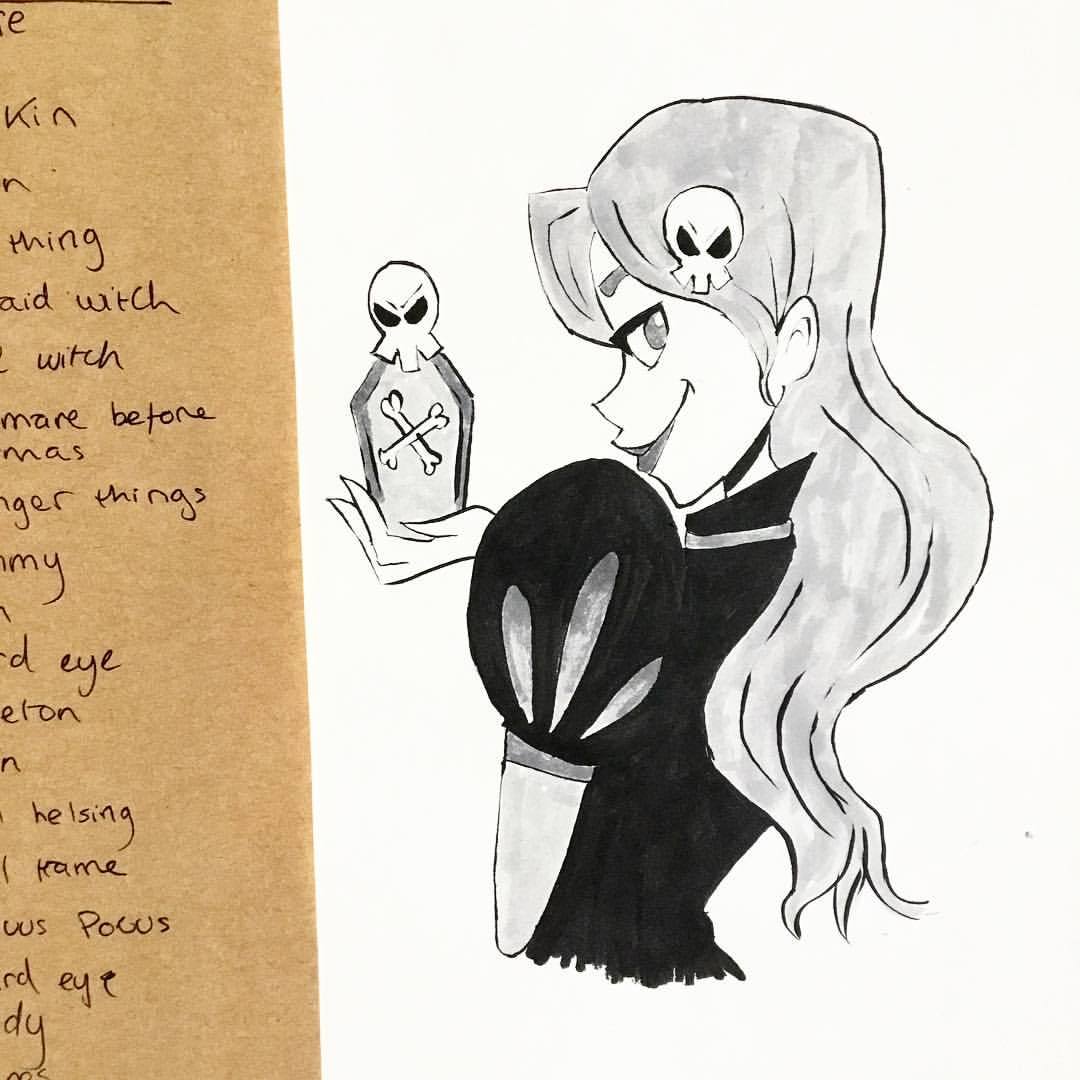 re
kin
n
thing
aid witch
witch
mare before
mas
nger things
mmy
n
rd eye
eton
n
helsing
l kame
cus Pocus
rd eye
dy